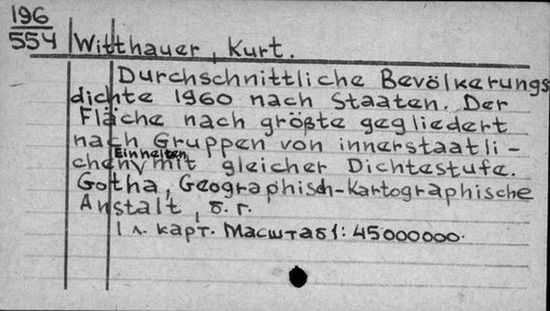 196
554 Witthauer, Kurt.
Durchschnittliche Bevölkerungs
dichte 1960 nach Staaten. Der
Fläche nach größte gegliedert
nach Gruppen von innerstaatli-
Einheiten
chen v mit gleicher Dichtestufe.
Gotha, Geographisch-Kartographische
Anstalt, б. г.
1 л. карт. Масштаб 1: 45000000.